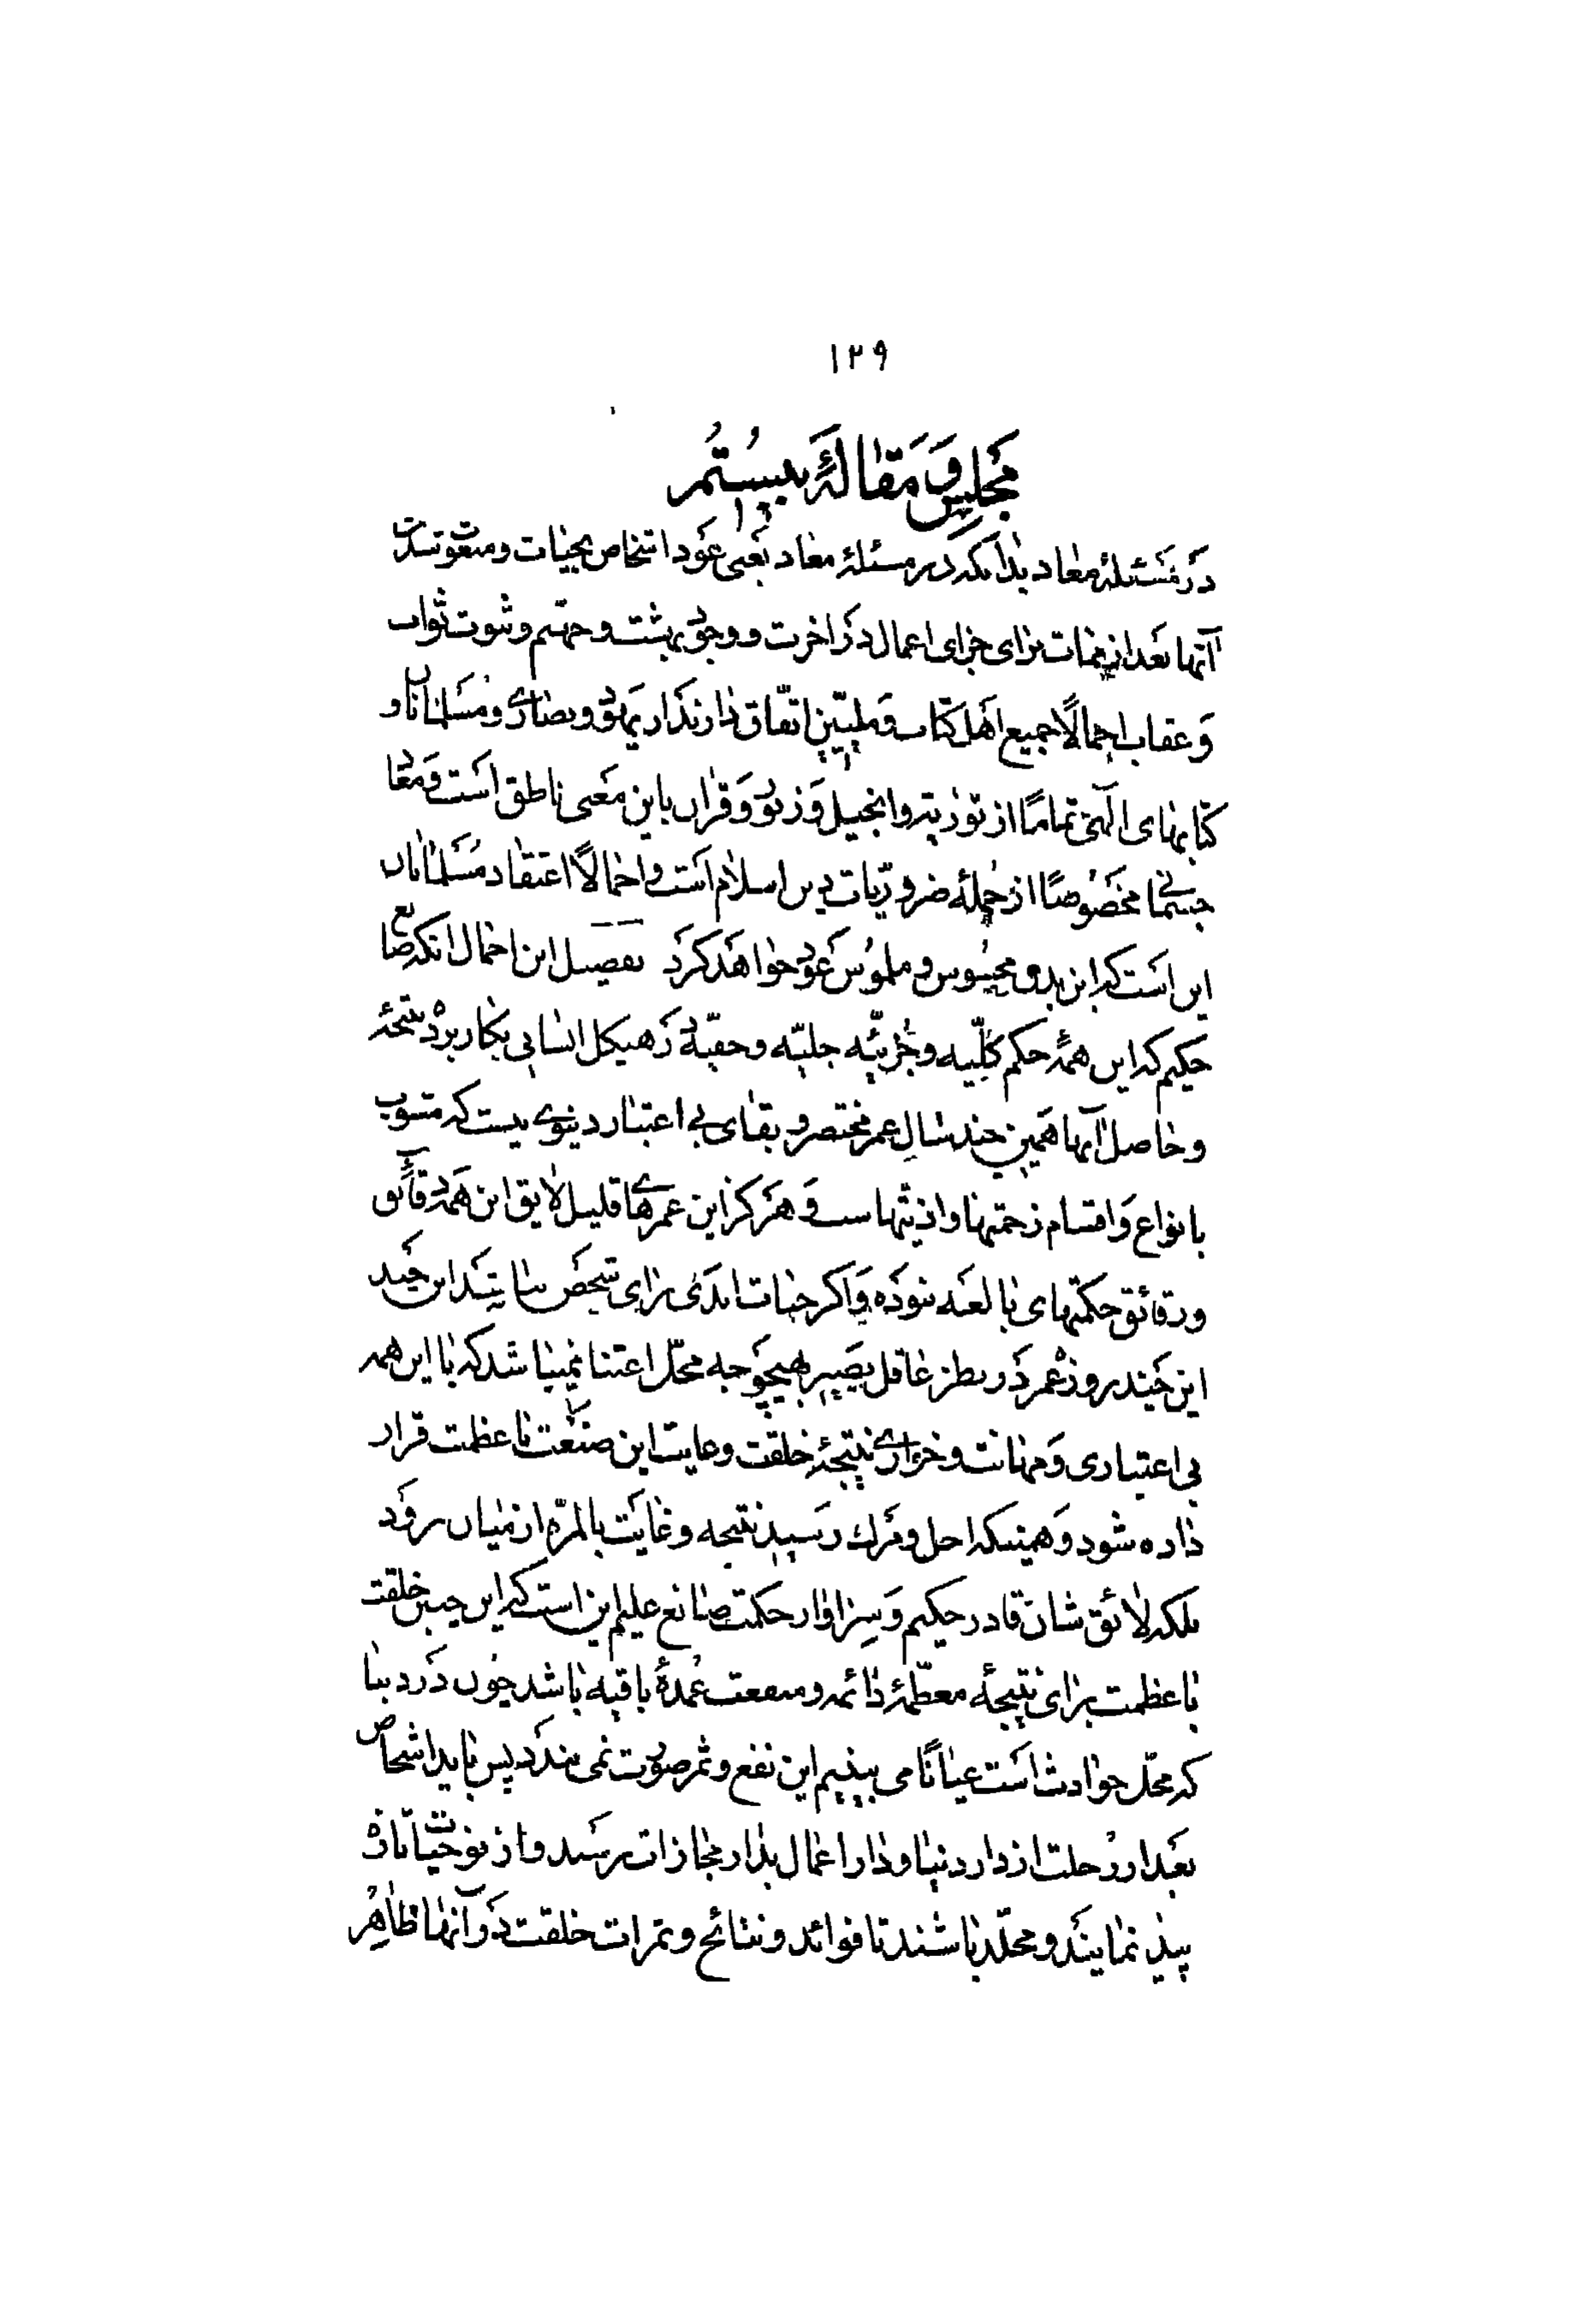 ١٢٩
مجلس و مقالهٔ بیستم
در مسئلهٔ معاد بدانکه در مسئلهٔ معاد یعنی عود اشخاص بحیات و مبعوث شدن
آنها بعد از ممات برای جزای اعمال در اخرت و وجود بهشت و جهنم و ثبوت ثواب
و عقاب اجمالًا جمیع اهل کتاب و ملیّین اتّفاق دارند از یهود و نصاری و مسلمانان و
کتابهای الٓهی تمامًا از توریة و انجیل و زبور و قران باین معنی ناطق است و معاد
جسمانی مخصوصًا از جملهٔ ضروریّات دین اسلام است و اجمالًا اعتقاد مسلمانان
این است که این بدن محسوس و ملموس عود خواهد کرد تفصیل این اجمال انکه صانع
حکیم که این همهٔ حکم کلّیه و جزئیّه جلیّه و خفیّه در هیکل انسانی بکار برده نتیجهٔ
و حاصل آنها همین چند سال عمر مختصر و بقای بی اعتبار دنیوی نیست که مشوب
بانواع و اقسام زحمتها و اذیتهاست و هرکز این عمرهای قلیل لایق این همه دقائق
و رقائق حکمتهای بالغه نبوده و اکر حیات ابدی برای شخص نباشد این چند
این چند روز عمر در نظر عاقل بصیر بهیچوجه محلّ اعتنا نمیباشد که با این همه
بی اعتباری و مهانت و خواری نتیجهٔ خلقت و غایت این صنعت با عظمت قرار
داده شود و همینکه اجل و مرك رسید نتیجه و غایت بالمرّه از میان برود
بلکه لائق شان قادر حکیم و سزاوار حکمت صانع علیم این است که این چنین خلقت
با عظمت برای نتیجهٔ معظّمهٔ دائمه و منفعت عمدهٔ باقیه باشد چون در دنیا
که محلّ حوادث است عیانًا می بینیم این نفع و ثمر صورت نمی بندد پس باید اشخاص
بعد از رحلت از دار دنیا و دار اعمال بدار مجازات برسند و از نو حیات تازه
پیدا نمایند و مخلّد باشند تا فوائد و نتائج و ثمرات خلقت در آنها ظاهر